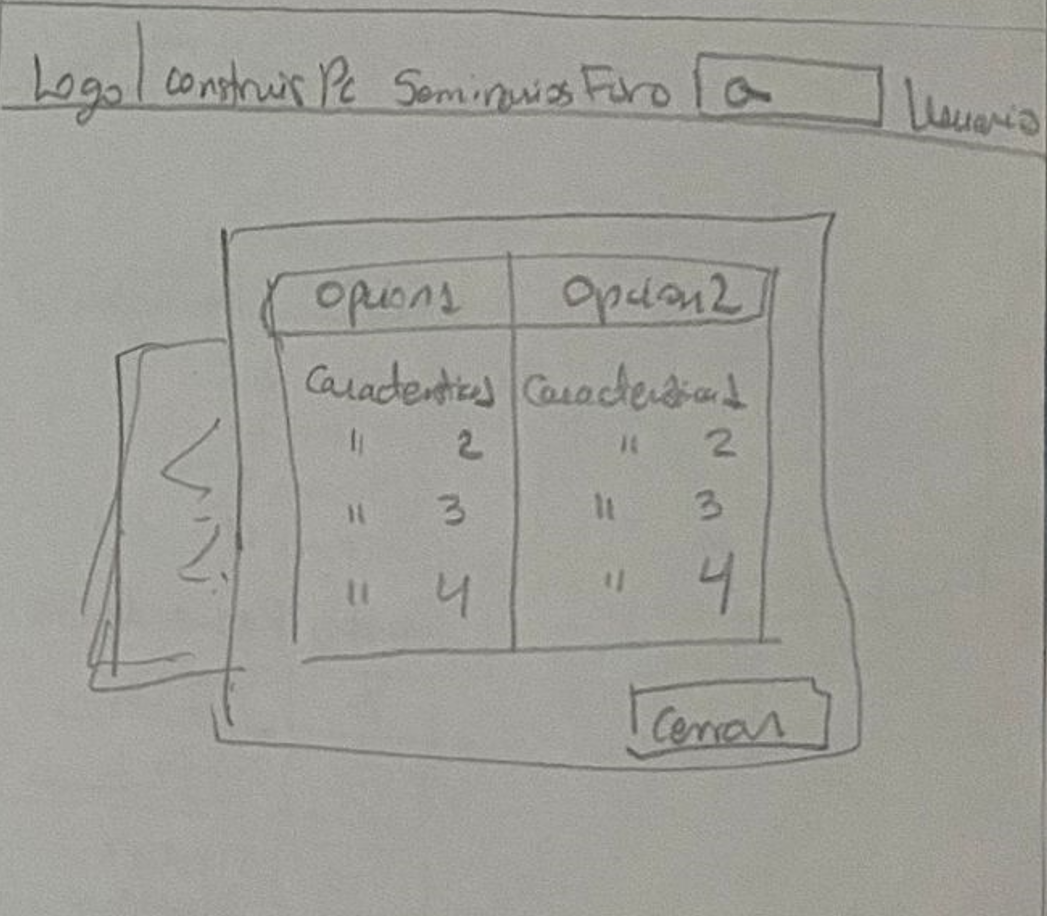 Logo construir Pc Seminarios Foro Usuario
Opcion1 Opcion2
Caracteristica1 Caracteristica1
" 2 " 2
" 3 " 3
" 4 " 4
Cerrar